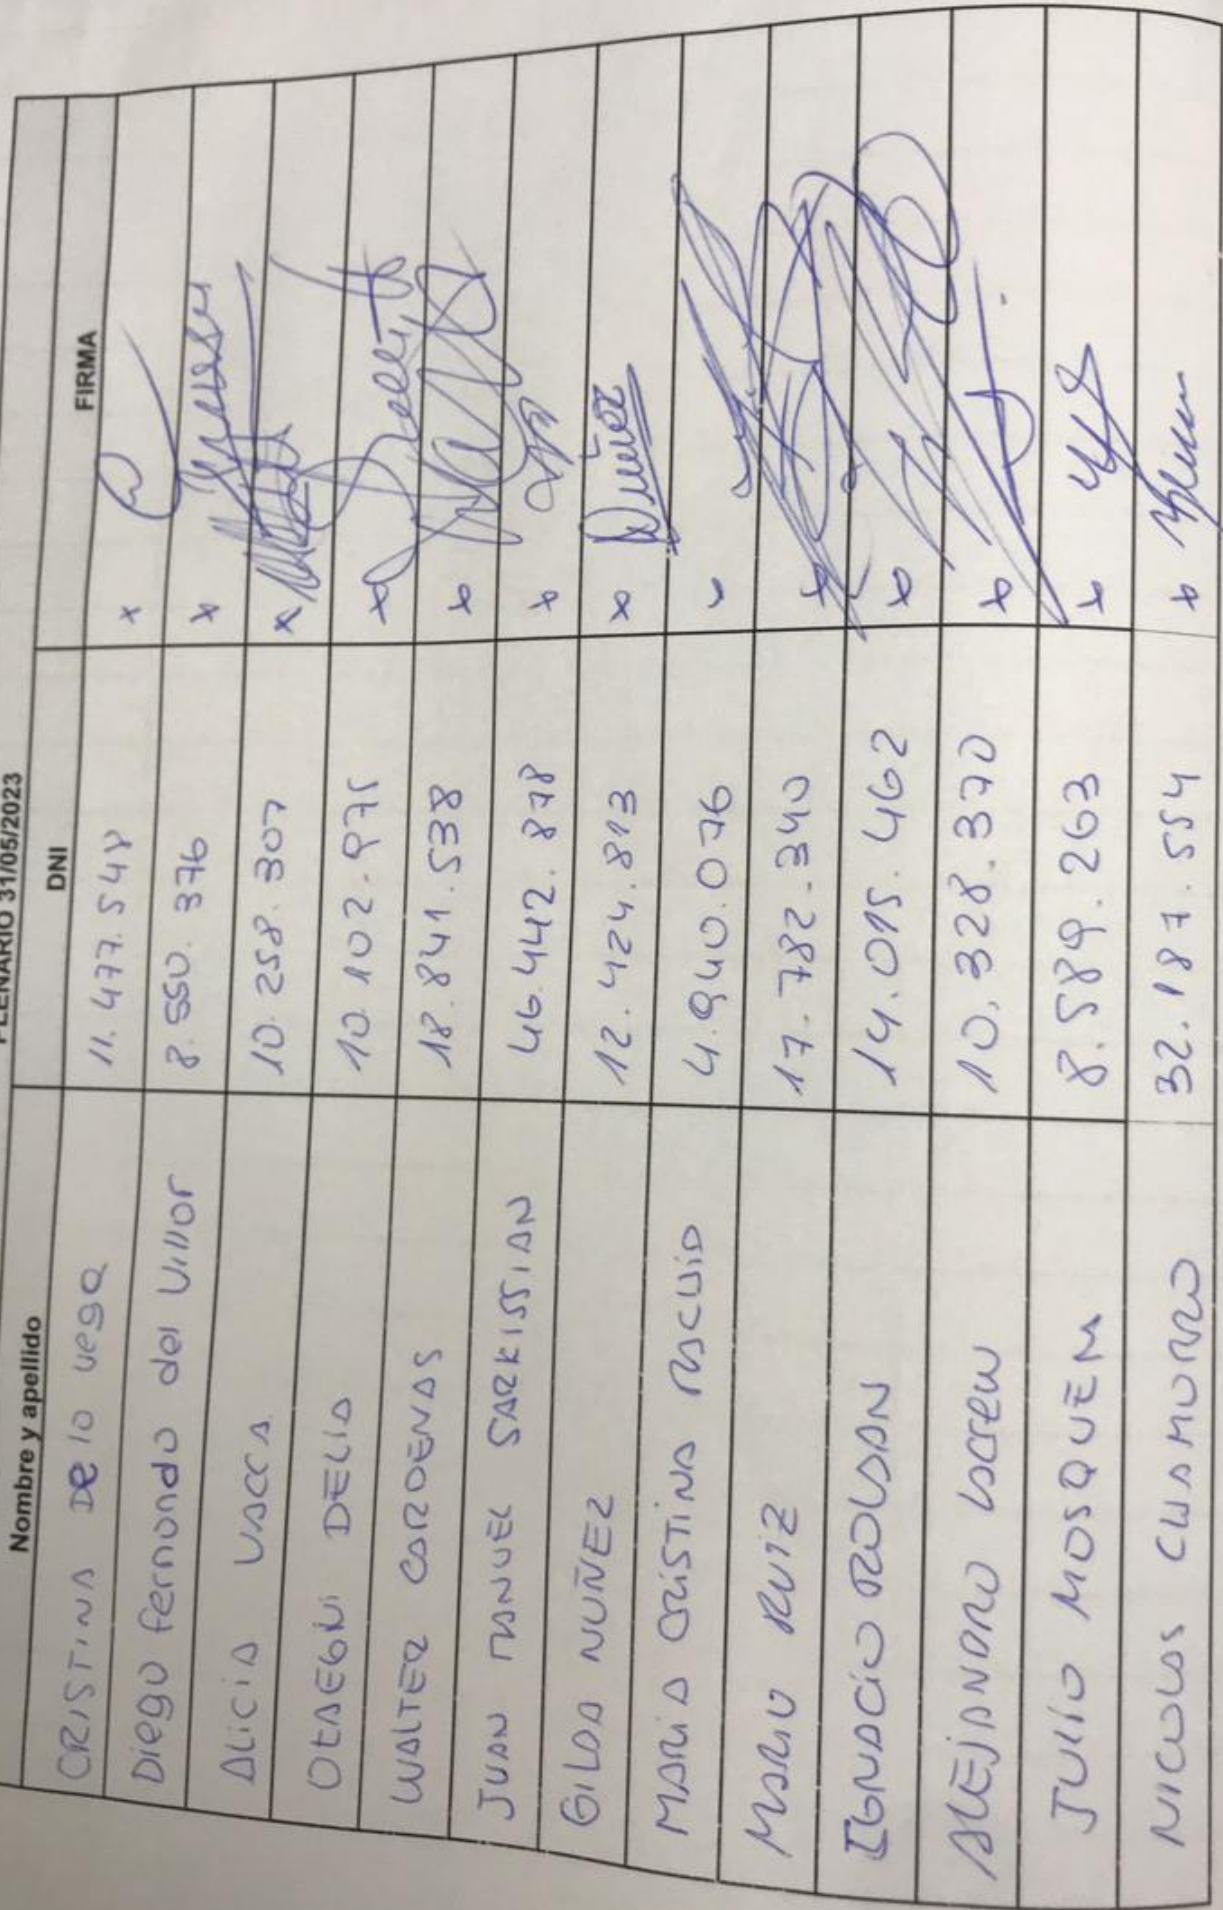 PLENARIO 31/05/2023
Nombre y apellido DNI FIRMA
CRISTINA De la vega 11.477.548 x
Diego fernando del Villar 8.550.376 x
ALICIA VACCA 10.258.307 x
OTAEGUI DELIA 10.102.975 x
WALTER CARDENAS 18.841.538 x
JUAN MANUEL SARKISSIAN 46.442.878 x
GILDA NUÑEZ 12.424.813 x Nuñez
MARIA CRISTINA 4.940.076
MARIO RUIZ 17.782.340 x
IGNACIO ROLDAN 14.015.462 x
ALEJANDRO 10.328.370 x
JULIO MOSQUEM 8.589.263 x
NICOLAS CHAMORRO 32.187.554 x